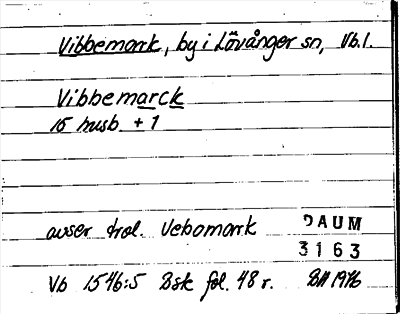 Vibbemark, by i Lövånger sn, Vb. l.
Vibbemarck
15 husb. + 1
avser trol. Vebomark
DAUM
3163
Vb 1546:5 Bsk fol. 48 r. BH 1976